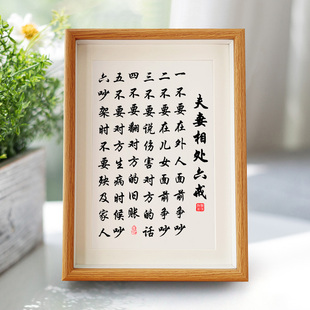 夫妻相处六戒
一不要在外人面前争吵
二不要在儿女面前争吵
三不要说伤害对方的话
四不要翻对方的旧账
五不要对方生病时候吵
六吵架时不要殃及家人